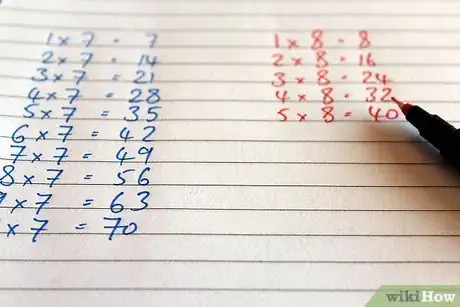 1 x 7 = 7
2 x 7 = 14
3 x 7 = 21
4 x 7 = 28
5 x 7 = 35
6 x 7 = 42
7 x 7 = 49
8 x 7 = 56
x 7 = 63
x 7 = 70
1 x 8 = 8
2 x 8 = 16
3 x 8 = 24
4 x 8 = 32
5 x 8 = 40
wikiHow